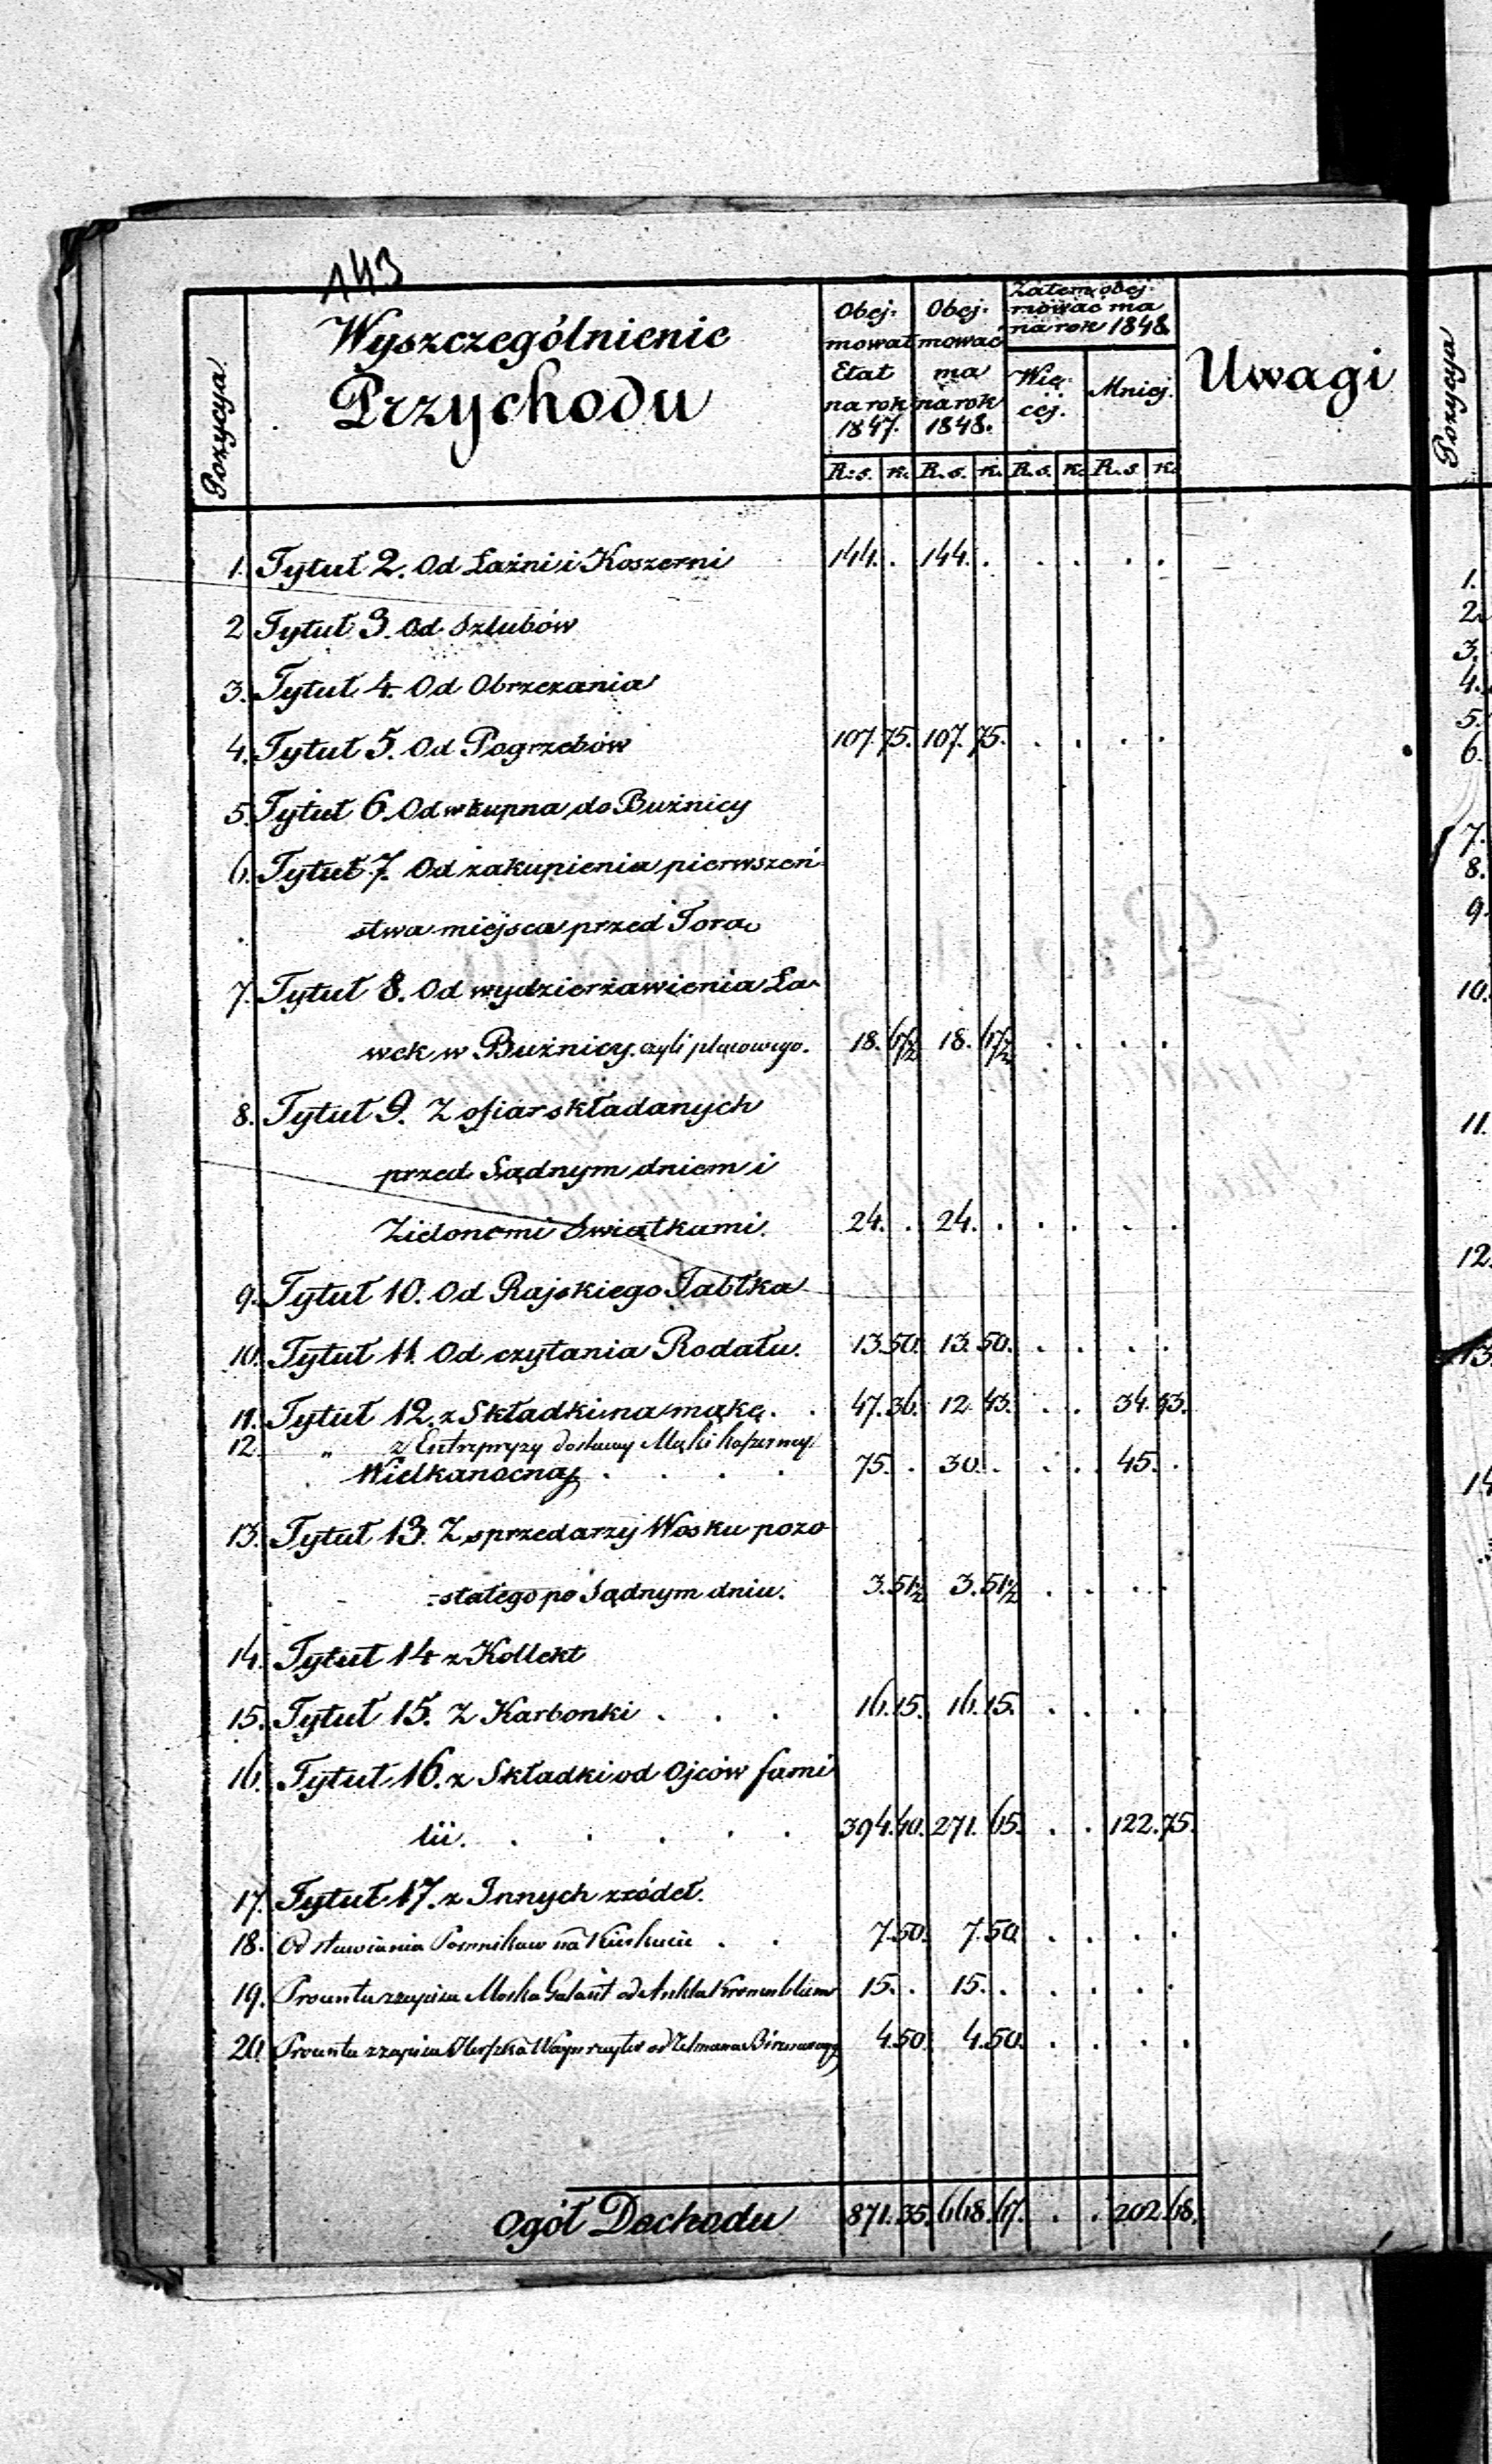 143
Pozycya
Wyszczególnienie
Przychodu
Obej-
mował
Etat
na rok
1847.
Obej-
mować
ma
na rok
1848.
Zatem obej-
mować ma
na rok 1848.
Wię-
céj.
Mniej.
Uwagi
Pozycya
R:s. k. R.s. k. R.s. k. R.s. k.
1. Tytuł 2. Od Łaźni i Koszerni 144. . 144. . . . . .
2 Tytuł 3. Od Szlubów
3. Tytuł 4. Od Obrzezania
4. Tytuł 5. Od Pogrzebów 107. 75. 107. 75. . . . .
5. Tytuł 6. Od wkupna do Bużnicy
6. Tytuł 7. Od zakupienia pierwszeń-
stwa miejsca przed Torą
7. Tytuł 8. Od wydzierżawienia Ła-
wek w Bużnicy, czyli placowego. 18. 67½ 18. 67½ . . . .
8. Tytuł 9. Z ofiar składanych
przed Sądnym dniem i
Zielonemi Swiątkami. 24. . 24. . . . . .
9. Tytuł 10. Od Rajskiego Jabłka
10. Tytuł 11. Od czytania Rodału. 13. 50. 13. 50. . . . .
11. Tytuł 12. z Składki na mąkę. . 47. 36. 12. 43. . . 34. 93.
12. „ z Entrepryzy dostawy Mąki koszernej
Wielkanocnej . . . . 75. . 30. . . . 45. .
13. Tytuł 13. Z sprzedarzy Wosku pozo
-stałego po Sądnym dniu. 3. 51½ 3. 51½ . . . .
14. Tytuł 14 z Kollekt
15. Tytuł 15. Z Karbonki . . . 16. 15. 16. 15. . . . .
16. Tytuł 16. z Składki od Ojców fami
lii. . . . . . 394. 40. 271. 65. . . 122. 75.
17. Tytuł 17. z Innych źródeł.
18. Od stawiania Pomników na Kirkucie . . 7. 50. 7. 50 . . . .
19. Procentu z zapisu Moska Galant od 15. . 15. . . . . .
20. Procentu z zapisu od Zelmana 4. 50. 4. 50. . . . .
Ogół Dochodu 871. 35. 668. 67. . . 202. 68.
1.
2.
3.
4.
5.
6.
7.
8.
9.
10.
11.
12.
13.
14